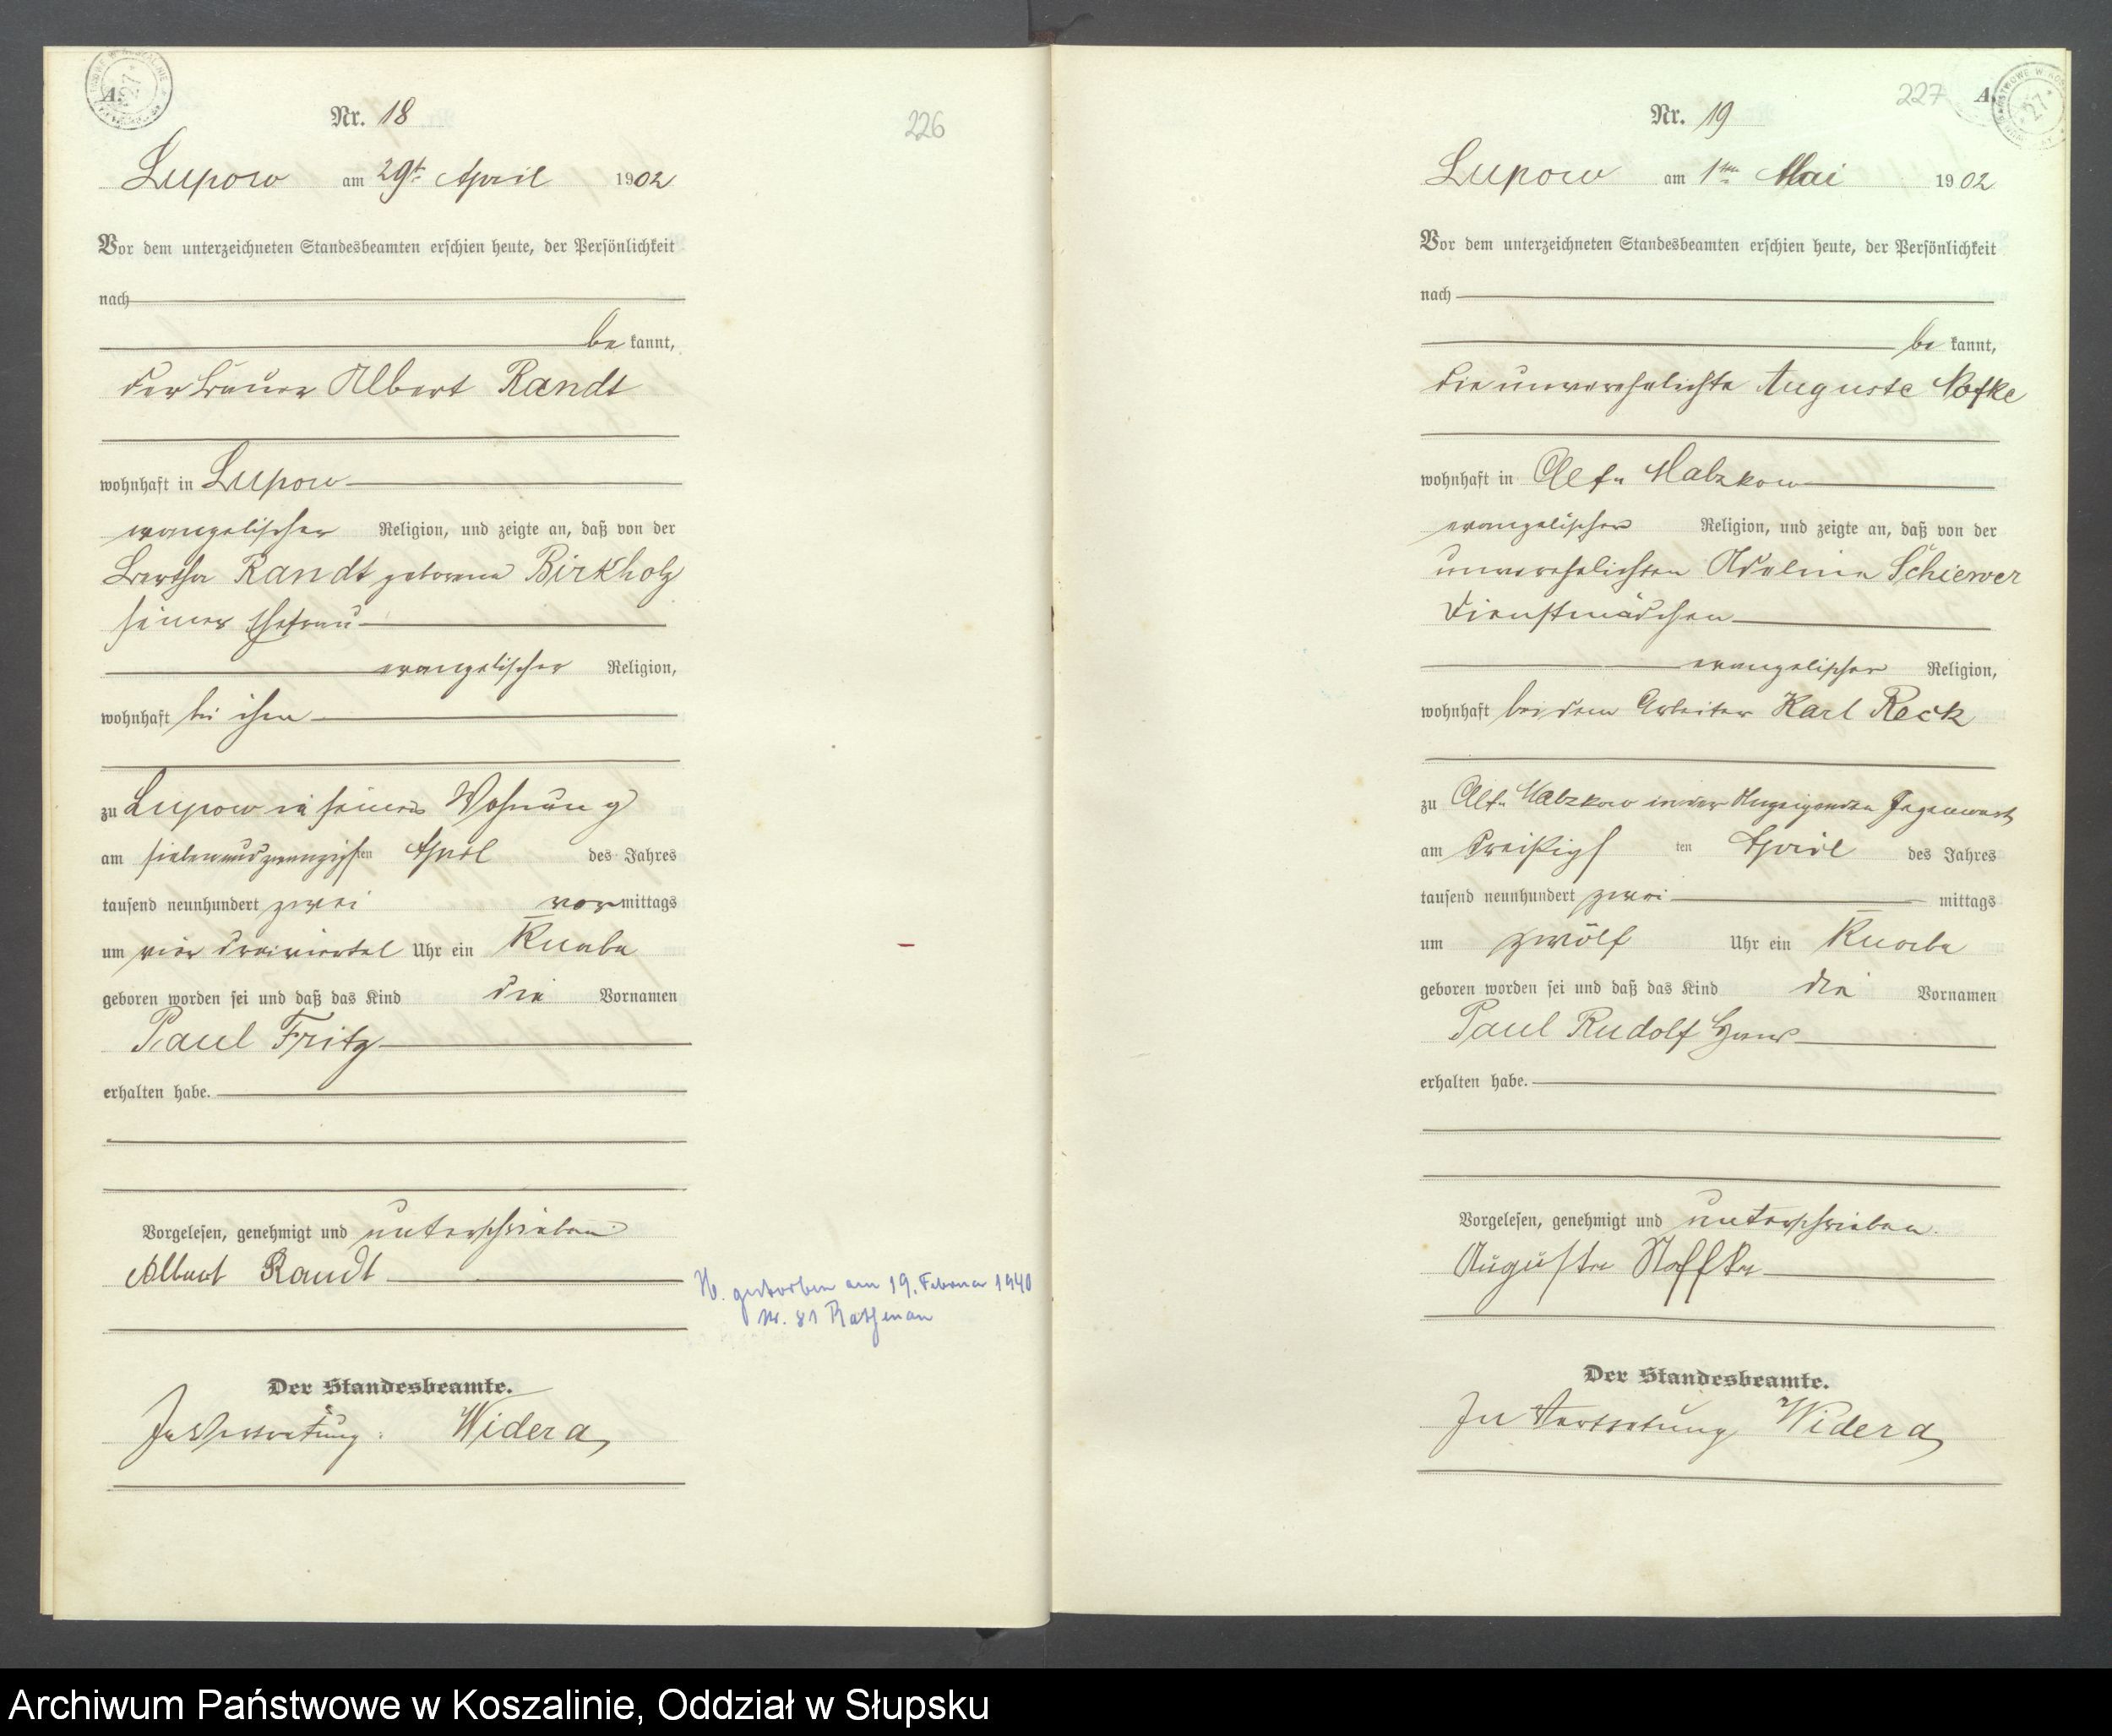 A.
Nr. 18
226
Lupow am 29t. April 1902
Vor dem unterzeichneten Standesbeamten erschien heute, der Persönlichkeit
nach
be kannt,
der Bauer Albert Randt
wohnhaft in Lupow
evangelischer Religion, und zeigte an, daß von der
Bertha Randt geborene Birkholz
seiner Ehefrau
evangelischer Religion,
wohnhaft bei ihm
zu Lupow in seiner Wohnung
am siebenundzwanzigsten April des Jahres
tausend neunhundert zwei vormittags
um vier dreiviertel Uhr ein Knabe
geboren worden sei und daß das Kind die Vornamen
Paul Fritz
erhalten habe.
Vorgelesen, genehmigt und unterschrieben
Albert Randt
gestorben am 19. Februar 1940
Nr. 81 Rathenau
Der Standesbeamte.
In Vertretung. Widera
227
A.
27
Nr. 19
Lupow am 1ten Mai 1902
Vor dem unterzeichneten Standesbeamten erschien heute, der Persönlichkeit
nach
be kannt,
die unverehelichte Auguste Nofke
wohnhaft in Alt-Malzkow
evangelischer Religion, und zeigte an, daß von der
unverehelichten Adeline Schiewer
Dienstmädchen
evangelischer Religion,
wohnhaft bei dem Arbeiter Karl Reck
zu Alt-Malzkow in der Anzeigenden Gegenwart
am dreißigsten April des Jahres
tausend neunhundert zwei mittags
um zwölf Uhr ein Knabe
geboren worden sei und daß das Kind die Vornamen
Paul Rudolf Hans
erhalten habe.
Vorgelesen, genehmigt und unterschrieben.
Auguste Noffke
Der Standesbeamte.
In Vertretung Widera
Archiwum Państwowe w Koszalinie, Oddział w Słupsku